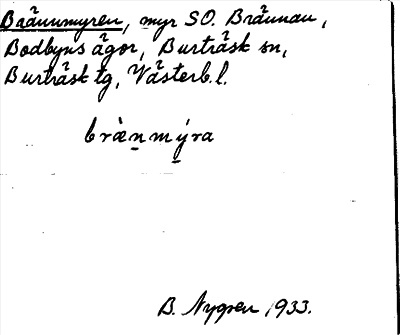 Brännmyren, myr SO. Brännan,
Bodbyns ägor, Burträsk sn,
Burträsk tg, Västerb. l.
bræ̀nmýra
B. Nygren 1933.